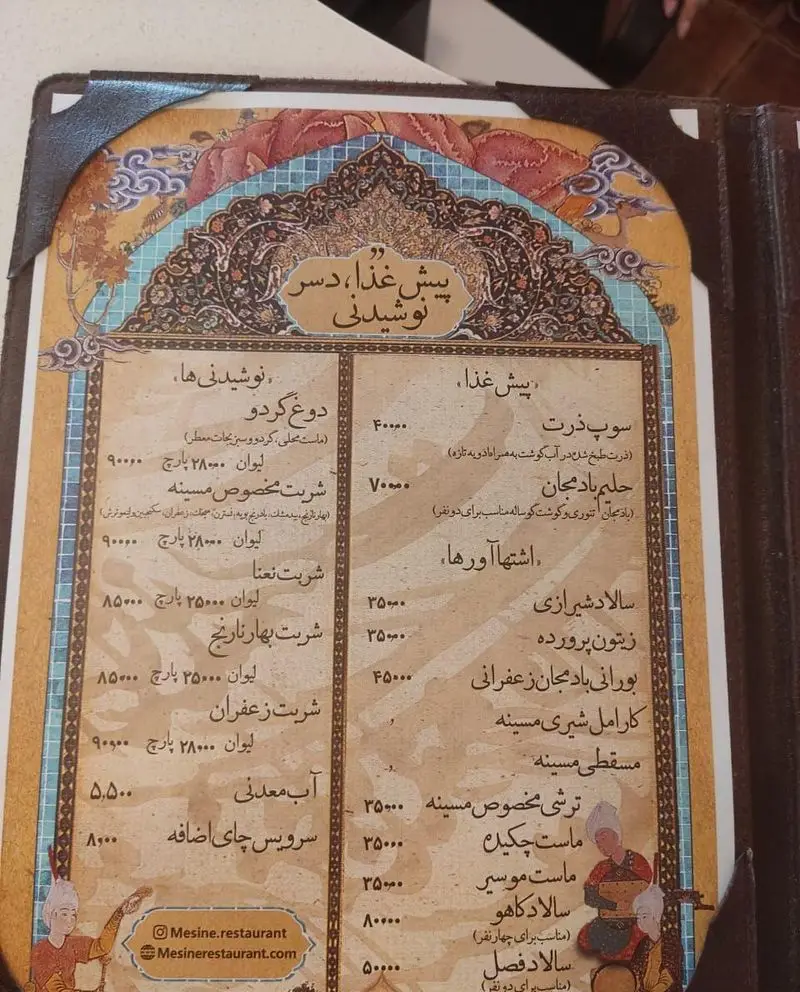 پیش غذا، دسر
نوشیدنی
«پیش غذا»
سوپ ذرت ۴۰۰۰۰
(ذرت طبخ شده در آب گوشت به همراه ادویه تازه)
حلیم بادمجان ۷۰۰۰۰
(بادمجان تنوری و گوشت گوساله مناسب برای دو نفر)
«اشتها آورها»
سالاد شیرازی ۳۵۰۰۰
زیتون پرورده ۳۵۰۰۰
بورانی بادمجان زعفرانی ۴۵۰۰۰
کارامل شیری مسینه
مسقطی مسینه
ترشی مخصوص مسینه ۳۵۰۰۰
ماست چکیده ۳۵۰۰۰
ماست موسیر ۳۵۰۰۰
سالاد کاهو ۸۰۰۰۰
(مناسب برای چهار نفر)
سالاد فصل ۵۰۰۰۰
(مناسب برای دو نفر)
«نوشیدنی ها»
دوغ گردو
(ماست محلی، گردو و سبزیجات معطر)
لیوان ۲۸۰۰۰ پارچ ۹۰۰۰۰
شربت مخصوص مسینه
(بهارنارنج، بیدمشک، بادرنجبویه، نسترن، زعفران، سکنجبین و لیمو ترش)
لیوان ۲۸۰۰۰ پارچ ۹۰۰۰۰
شربت نعنا
لیوان ۲۵۰۰۰ پارچ ۸۵۰۰۰
شربت بهارنارنج
لیوان ۲۵۰۰۰ پارچ ۸۵۰۰۰
شربت زعفران
لیوان ۲۸۰۰۰ پارچ ۹۰,۰۰۰
آب معدنی ۵,۵۰۰
سرویس چای اضافه ۸,۰۰۰
Mesine.restaurant
Mesinerestaurant.com